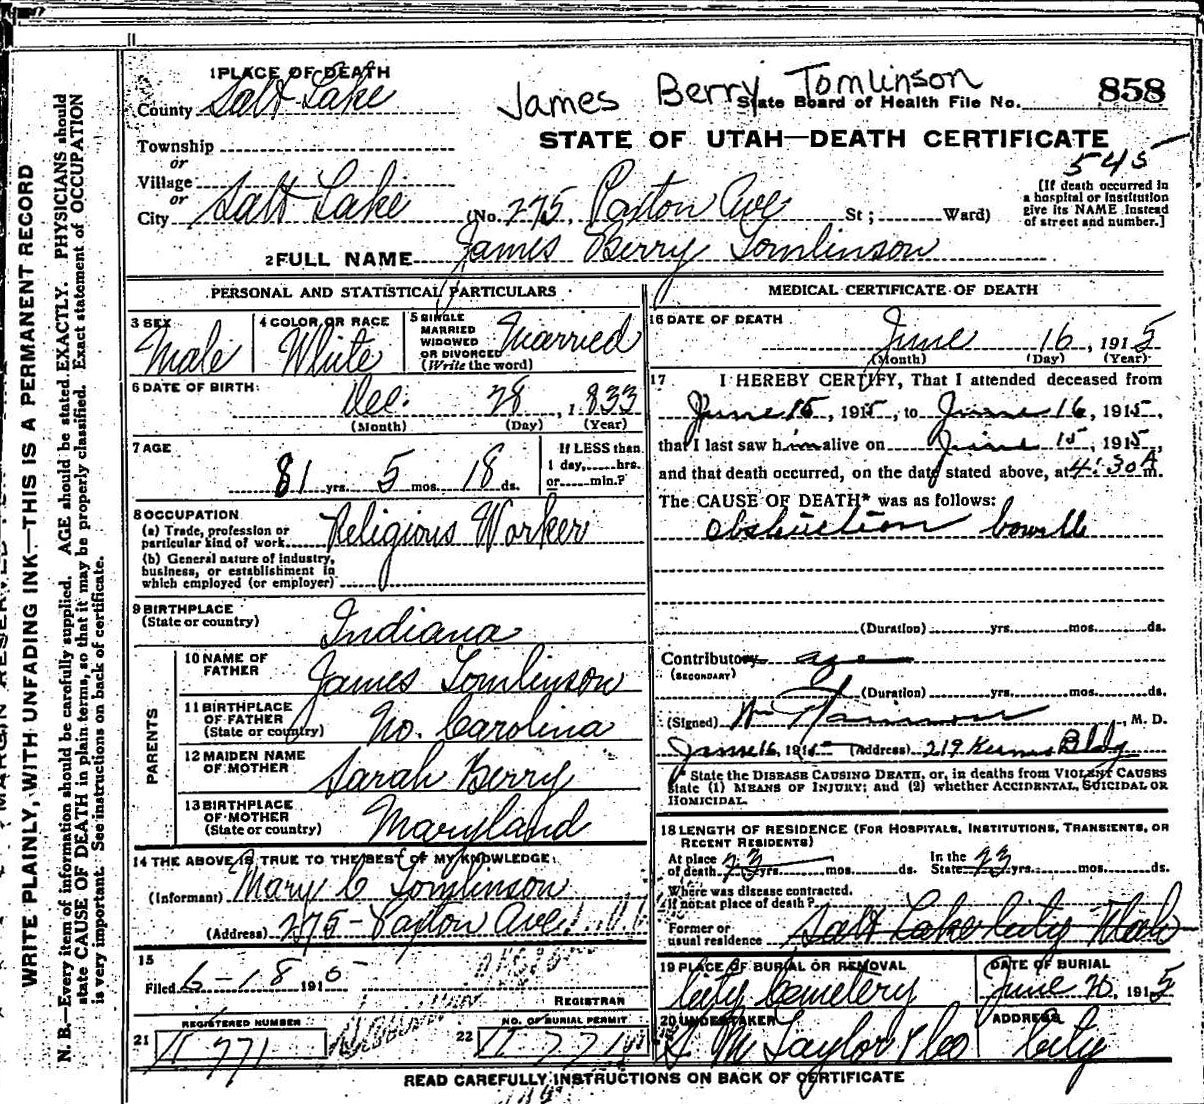 James Berry Tomlinson
1 PLACE OF DEATH
County Salt Lake
State Board of Health File No. 858
STATE OF UTAH—DEATH CERTIFICATE
545
Township
or
Village
or
City Salt Lake (No. 275 Paxton Ave St; Ward)
[If death occurred in a hospital or institution give its NAME instead of street and number.]
2 FULL NAME James Berry Tomlinson
PERSONAL AND STATISTICAL PARTICULARS
3 SEX Male
4 COLOR OR RACE White
5 SINGLE MARRIED WIDOWED OR DIVORCED (Write the word) Married
6 DATE OF BIRTH: Dec. 28, 1833
(Month) (Day) (Year)
7 AGE 81 yrs. 5 mos. 18 ds.
If LESS than 1 day, hrs. or min.?
8 OCCUPATION
(a) Trade, profession or particular kind of work Religious Worker
(b) General nature of industry, business, or establishment in which employed (or employer)
9 BIRTHPLACE
(State or country) Indiana
PARENTS
10 NAME OF FATHER James Tomlinson
11 BIRTHPLACE OF FATHER (State or country) No. Carolina
12 MAIDEN NAME OF MOTHER Sarah Berry
13 BIRTHPLACE OF MOTHER (State or country) Maryland
14 THE ABOVE IS TRUE TO THE BEST OF MY KNOWLEDGE:
(Informant) Mary C Tomlinson
(Address) 275 - Paxton Ave.
15
Filed 6-18 1915
REGISTRAR
21 REGISTERED NUMBER 771
22 NO. OF BURIAL PERMIT 771
MEDICAL CERTIFICATE OF DEATH
16 DATE OF DEATH June 16, 1915
(Month) (Day) (Year)
17 I HEREBY CERTIFY, That I attended deceased from
June 15, 1915, to June 16, 1915,
that I last saw him alive on June 15 1915,
and that death occurred, on the date stated above, at 4:30 A m.
The CAUSE OF DEATH* was as follows:
obstruction bowells
(Duration) yrs. mos. ds.
Contributory age
(SECONDARY)
(Duration) yrs. mos. ds.
(Signed) Wm M. D.
June 16, 1915 (Address) 219 Kearns Bldg
* State the DISEASE CAUSING DEATH, or, in deaths from VIOLENT CAUSES state (1) MEANS OF INJURY; and (2) whether ACCIDENTAL, SUICIDAL OR HOMICIDAL.
18 LENGTH OF RESIDENCE (FOR HOSPITALS, INSTITUTIONS, TRANSIENTS, OR RECENT RESIDENTS)
At place of death 23 yrs. mos. ds. In the State 23 yrs. mos. ds.
Where was disease contracted. If not at place of death?
Former or usual residence Salt Lake City Utah
19 PLACE OF BURIAL OR REMOVAL City Cemetery
DATE OF BURIAL June 20, 1915
20 UNDERTAKER S M Taylor & Co
ADDRESS City
READ CAREFULLY INSTRUCTIONS ON BACK OF CERTIFICATE
WRITE PLAINLY, WITH UNFADING INK.—THIS IS A PERMANENT RECORD
N. B.—Every item of information should be carefully supplied. AGE should be stated EXACTLY. PHYSICIANS should
state CAUSE OF DEATH in plain terms, so that it may be properly classified. Exact statement of OCCUPATION
is very important. See instructions on back of certificate.